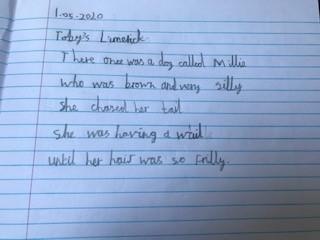 1.05.2020
Toby's Limerick
There once was a dog called Millie
who was brown and very silly
She chased her tail
She was having a wail
until her hair was so frilly.